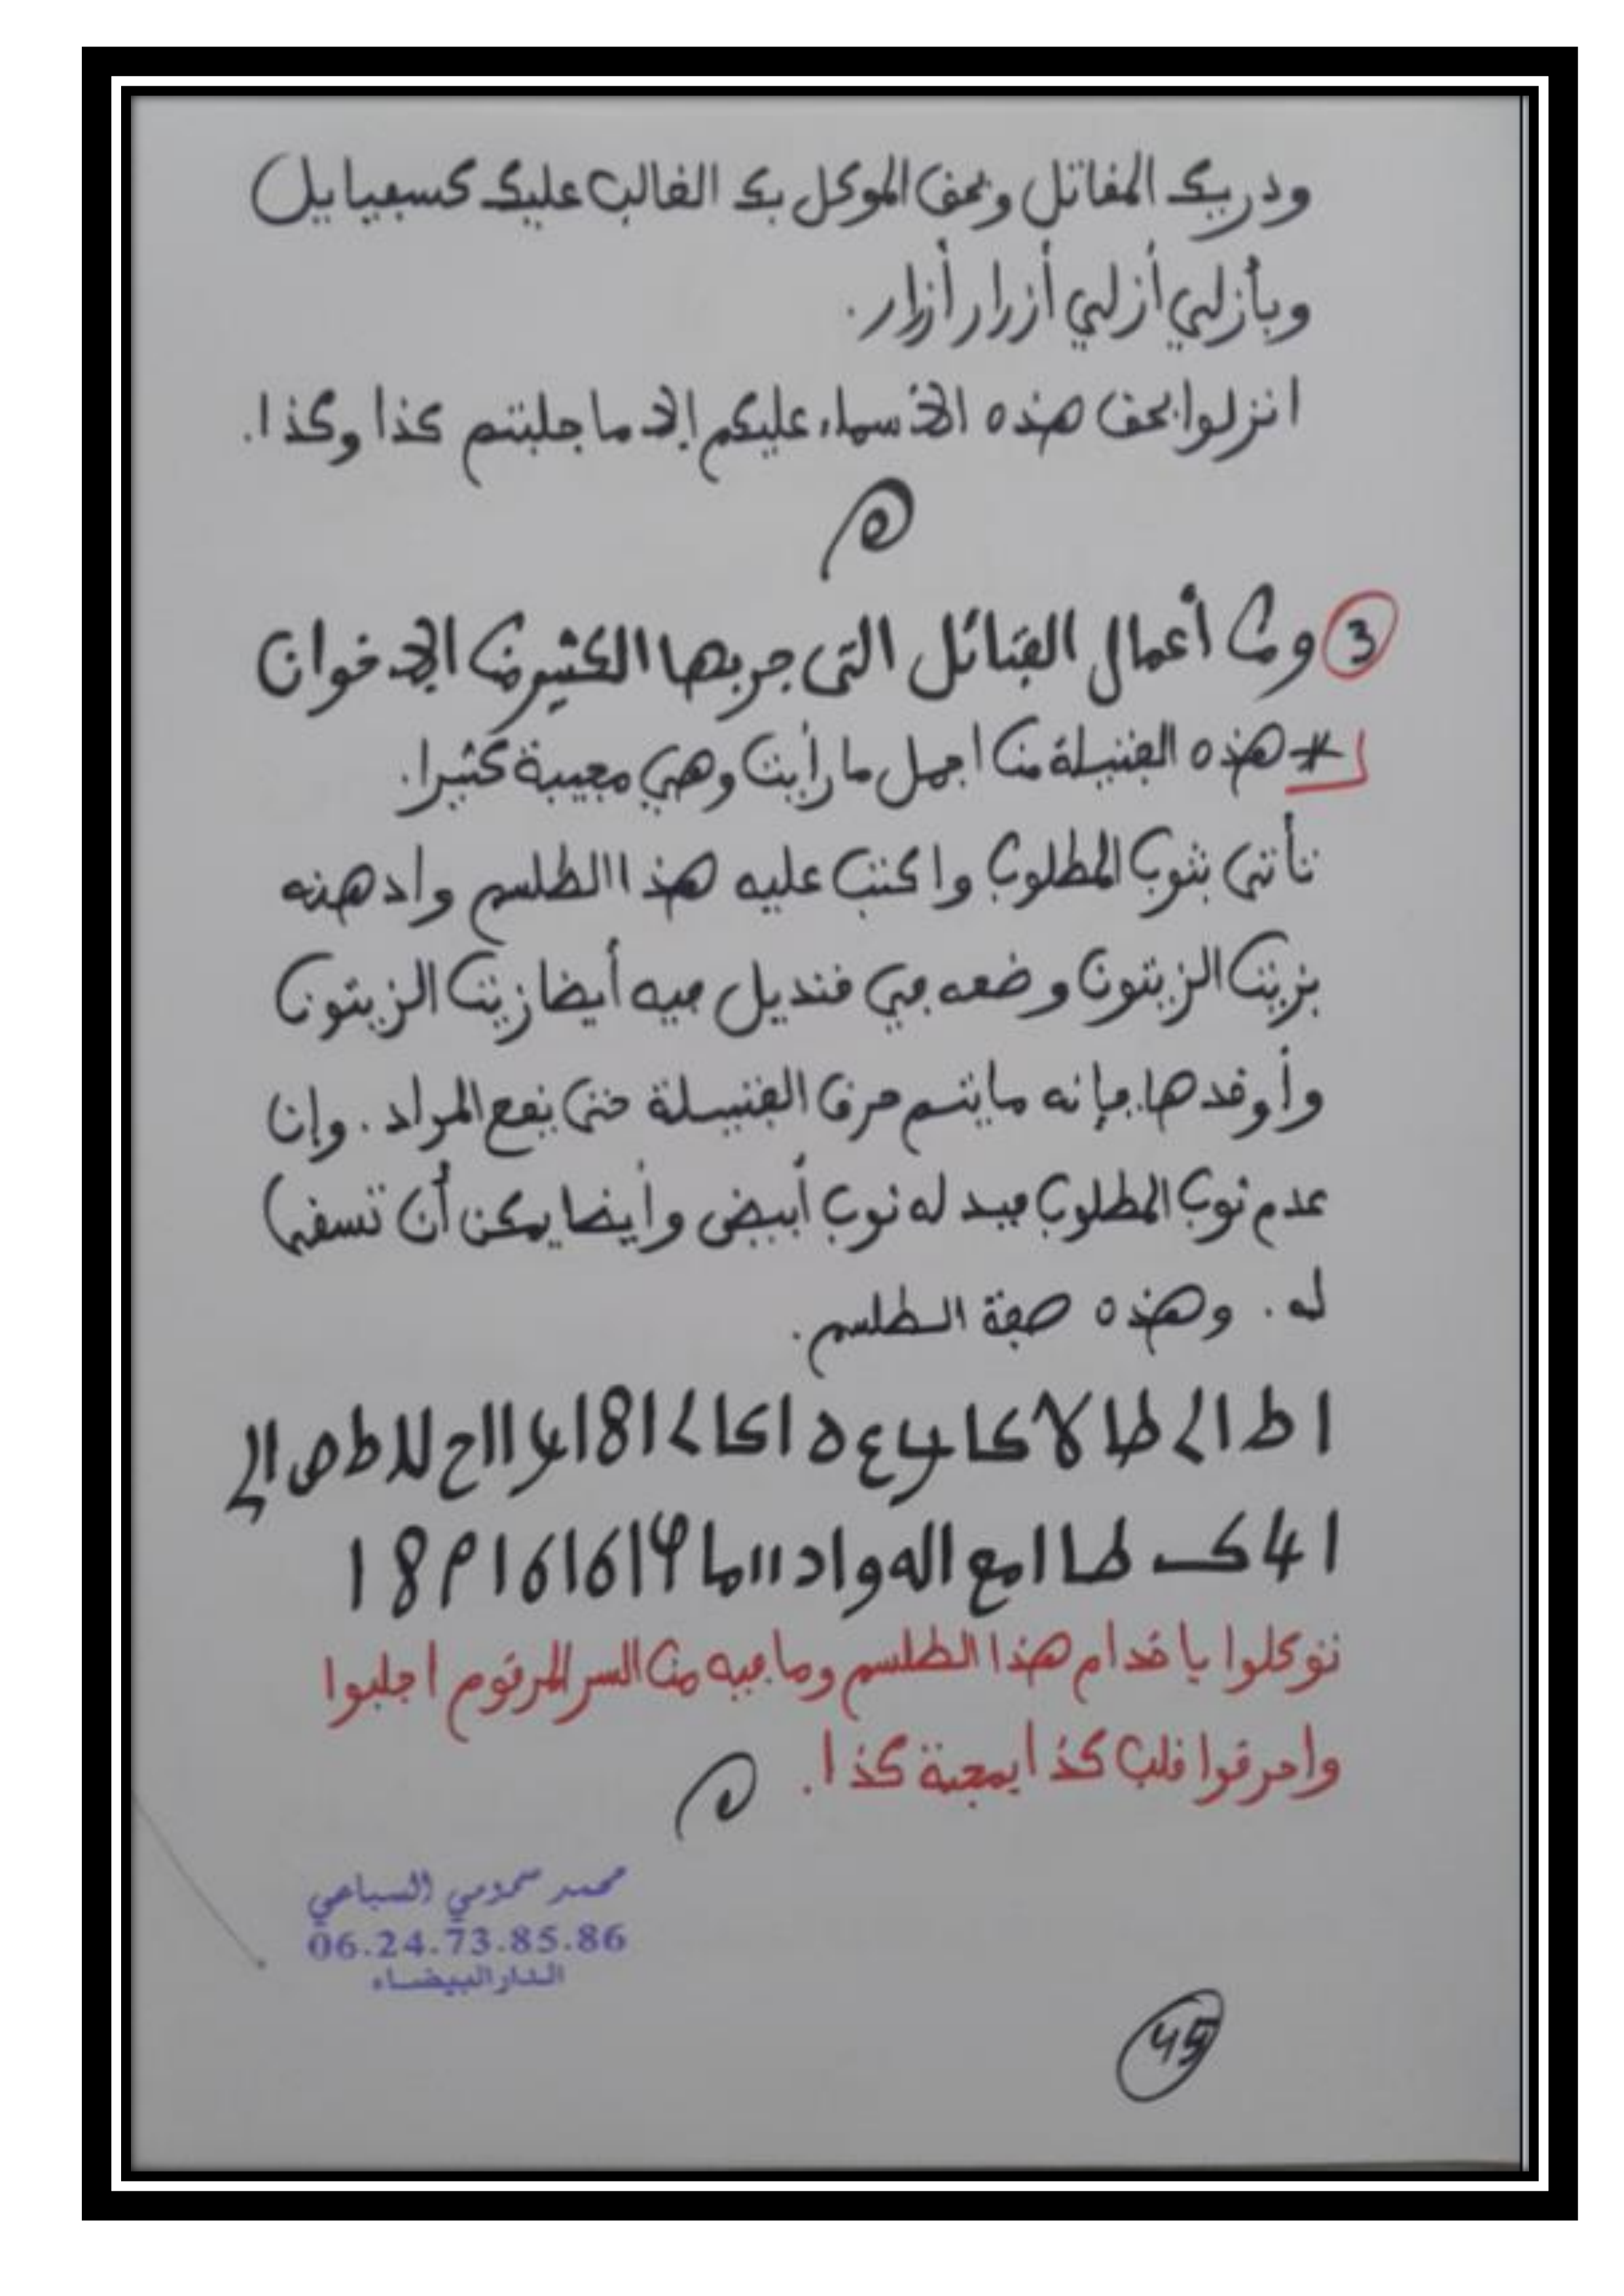 ودريك المقاتل وبحق الموكل بك الغالب عليك كسفيايل
وبأزلي أزلي أزرار أزرار.
انزلوا بحق هذه الأسماء عليكم إلا ما جلبتم كذا وكذا.
3 ومن أعمال الفتائل التى جربها الكثير من الإخوان
# هذه الفتيلة من اجمل ما رأيت وهي مجيبة كثيرا.
تأتى بثوب المطلوب واكتب عليه هذا الطلسم وادهنه
بزيت الزيتون وضعه في قنديل فيه أيضا زيت الزيتون
وأوقدها فإنه ما يتم حرق الفتيلة حتى يقع المراد. وإن
عدم ثوب المطلوب فبدله ثوب أبيض وأيضا يمكن أن تسقى
له. وهذه صفة الطلسم.
تتوكلوا يا خدام هذا الطلسم وما فيه من السر المرقوم اجلبوا
واحرقوا قلب كذا بمحبة كذا.
محمد سمومي السباعي
06.24.73.85.86
الدار البيضاء
45